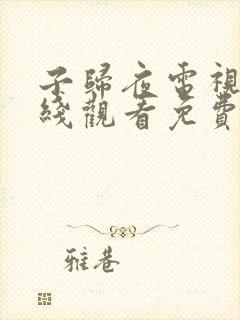 子歸夜電視
綫觀看免費
雅巷